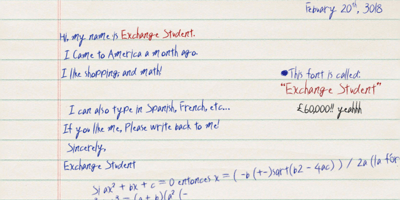 Febuary 20th, 3018
Hi, my name is Exchange Student.
I Came to America a month ago.
I like shopping and math!
This font is called:
"Exchange Student"
I can also type in Spanish, French, etc...
£60,000!! yeahhh
If you like me, Please write back to me!
Sincerely,
Exchange Student
Si ax² + bx + c = 0 entonces x = ( -b (+-)sqrt(b2 - 4ac) ) / 2a (la for